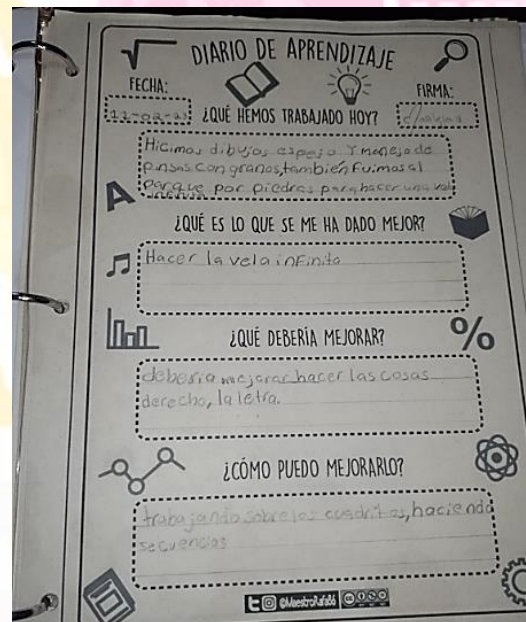 DIARIO DE APRENDIZAJE
FECHA:
FIRMA:
¿QUÉ HEMOS TRABAJADO HOY?
Hicimos dibujos espejo y manejo de
pinsas con granos, también fuimos al
parque por piedras para hacer una vela
infinita
¿QUÉ ES LO QUE SE ME HA DADO MEJOR?
Hacer la vela infinita
¿QUÉ DEBERÍA MEJORAR?
deberia mejorar hacer las cosas
derecho, la letra.
¿CÓMO PUEDO MEJORARLO?
trabajando sobre los cuadritos, haciendo
secuencias
@MaestroRafa86